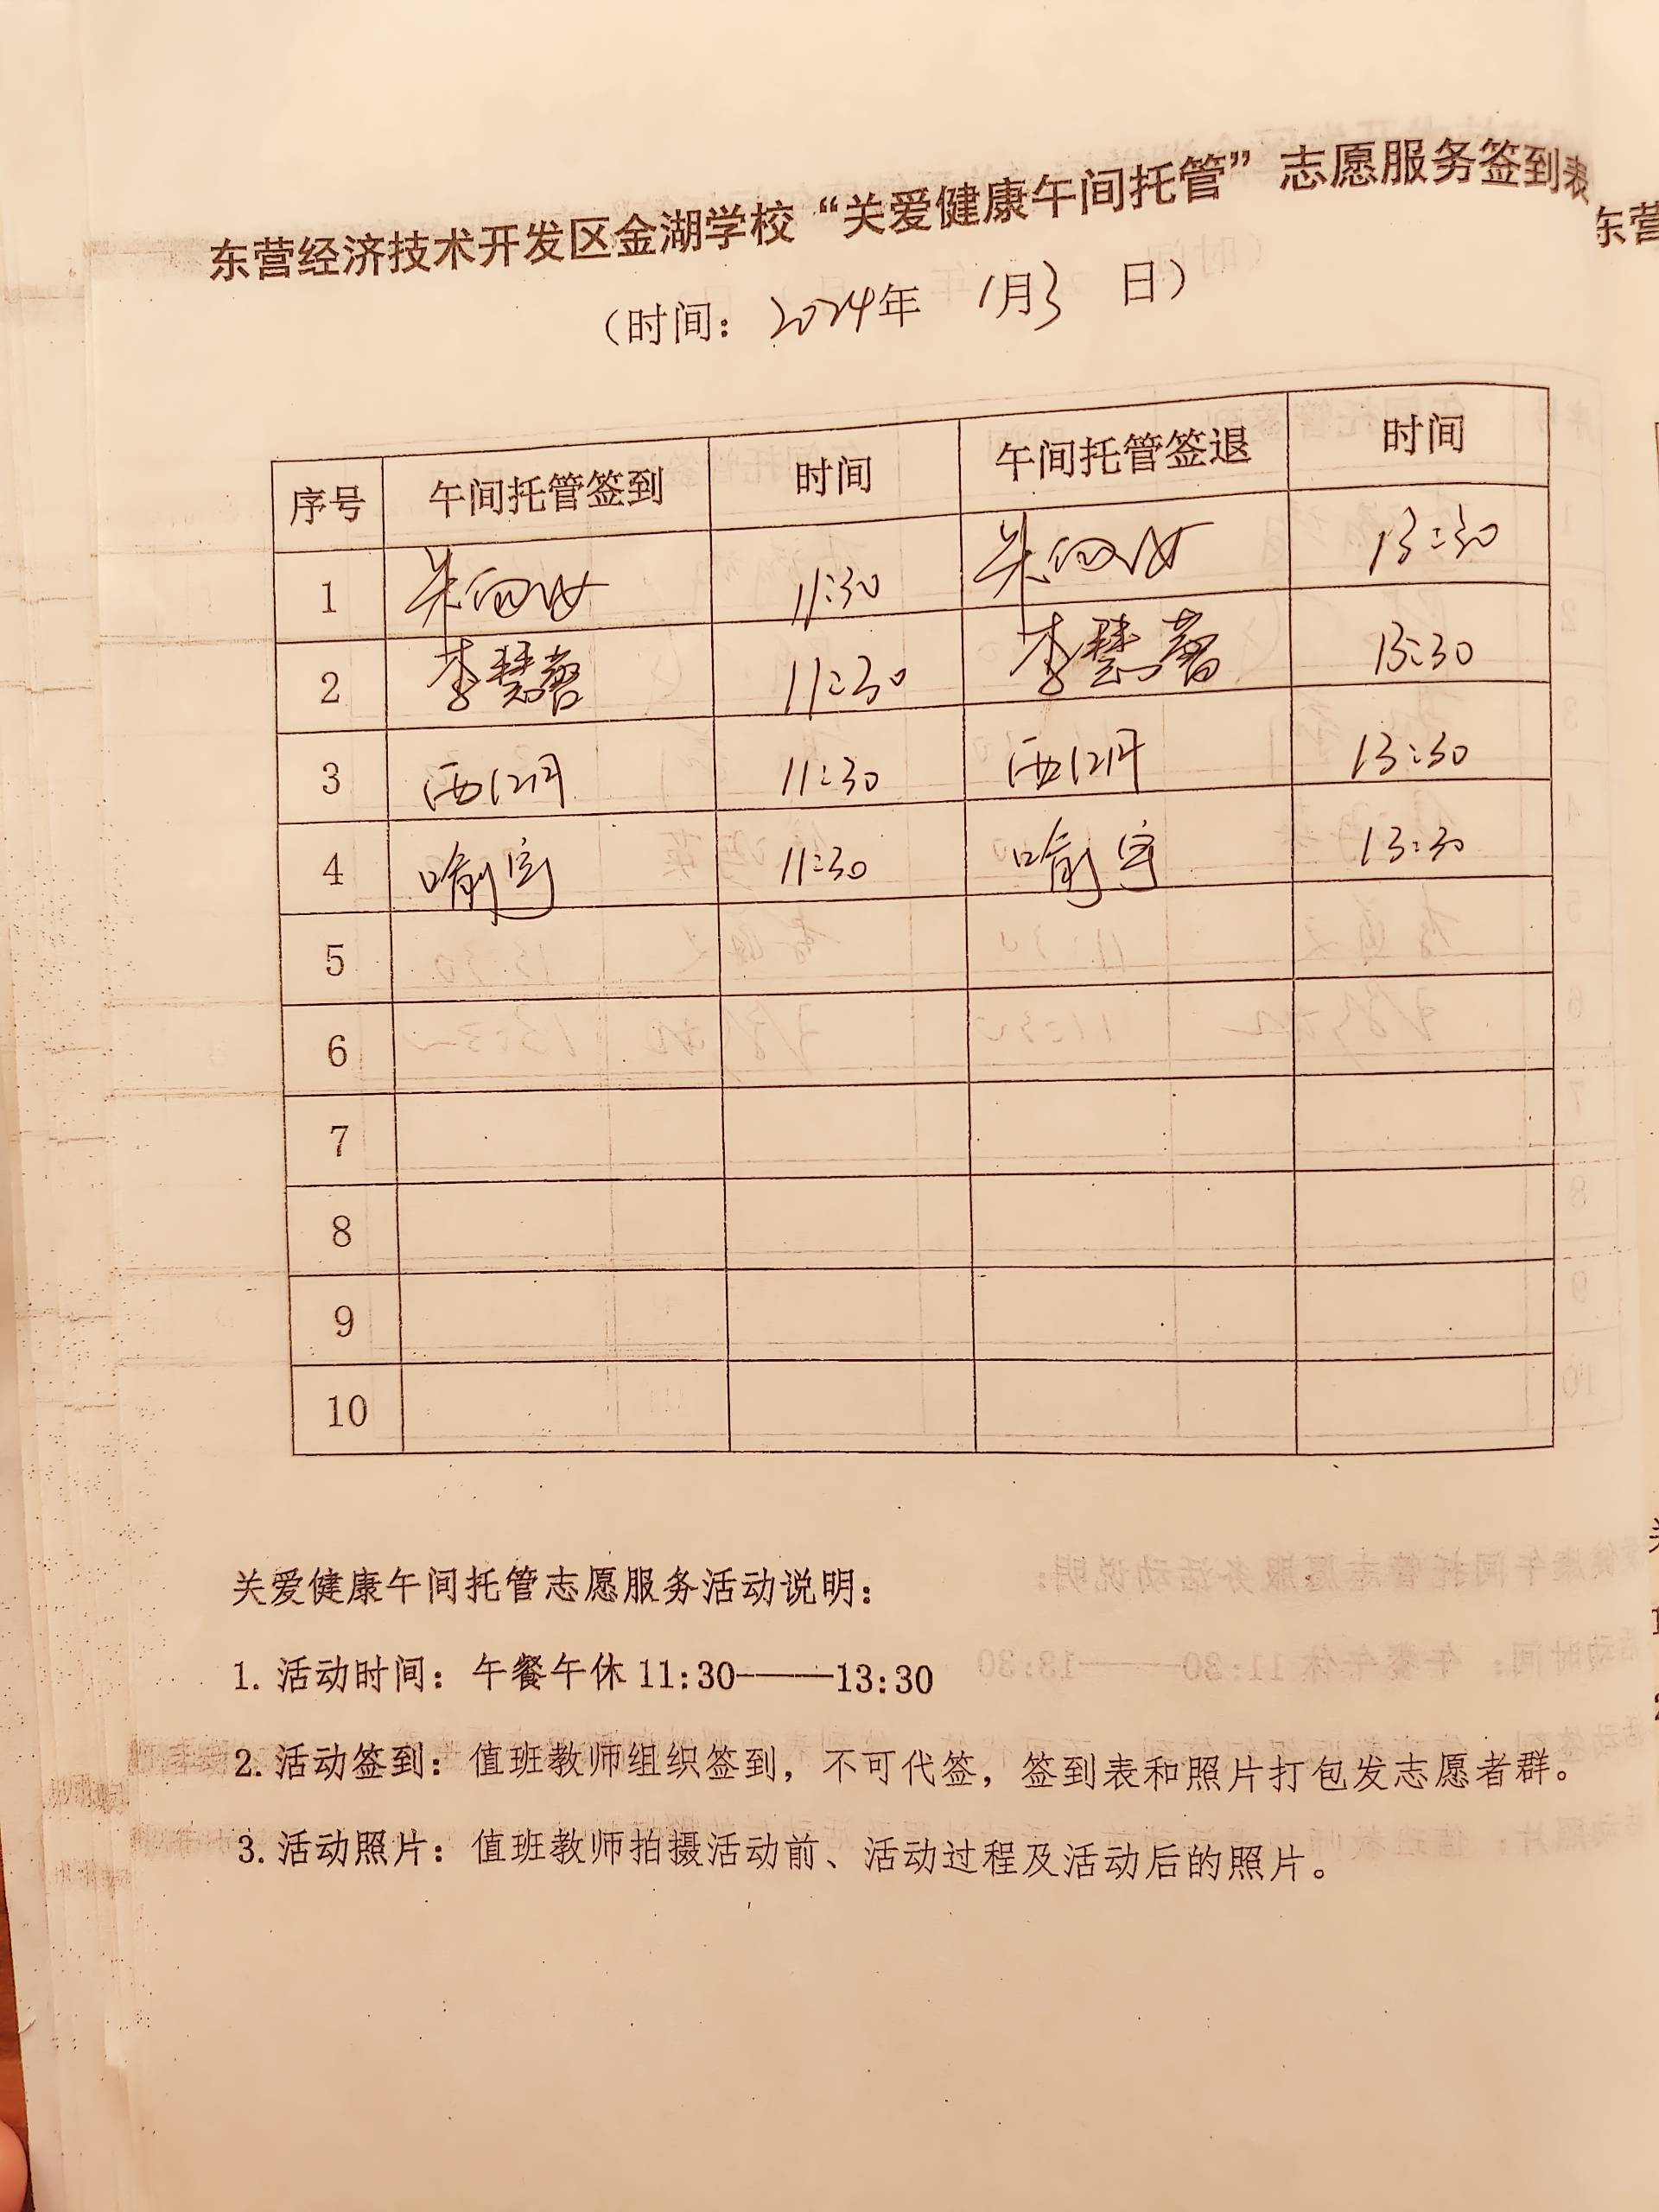 东营经济技术开发区金湖学校“关爱健康午间托管”志愿服务签到表
(时间: 2024年 1月3 日)
序号 午间托管签到 时间 午间托管签退 时间
1 11:30 13:30
2 李慧馨 11:30 李慧馨 13:30
3 11:30 13:30
4 喻宇 11:30 喻宇 13:30
5
6
7
8
9
10
关爱健康午间托管志愿服务活动说明:
1. 活动时间: 午餐午休11:30———13:30
2. 活动签到: 值班教师组织签到, 不可代签, 签到表和照片打包发志愿者群。
3. 活动照片: 值班教师拍摄活动前、活动过程及活动后的照片。
东营